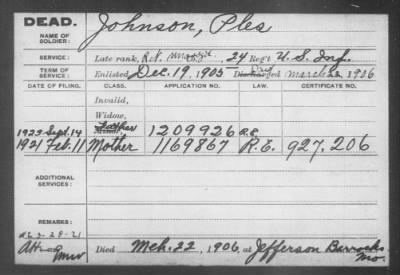 DEAD.
NAME OF SOLDIER: Johnson, Ples
SERVICE: Late rank, Rct. 24 Reg't U. S. Inf.
TERM OF SERVICE: Enlisted Dec. 19, 1905 Discharged Died March 22, 1906
DATE OF FILING. CLASS. APPLICATION NO. LAWS. CERTIFICATE NO.
Invalid,
Widow,
1923 Sept. 14 Minor, Father 1209926 R.E.
1921 Feb. 11 Mother 1169867 R.E. 927,206
ADDITIONAL SERVICES:
REMARKS:
Died Mch. 22, 1906, at Jefferson Barracks
Mo.